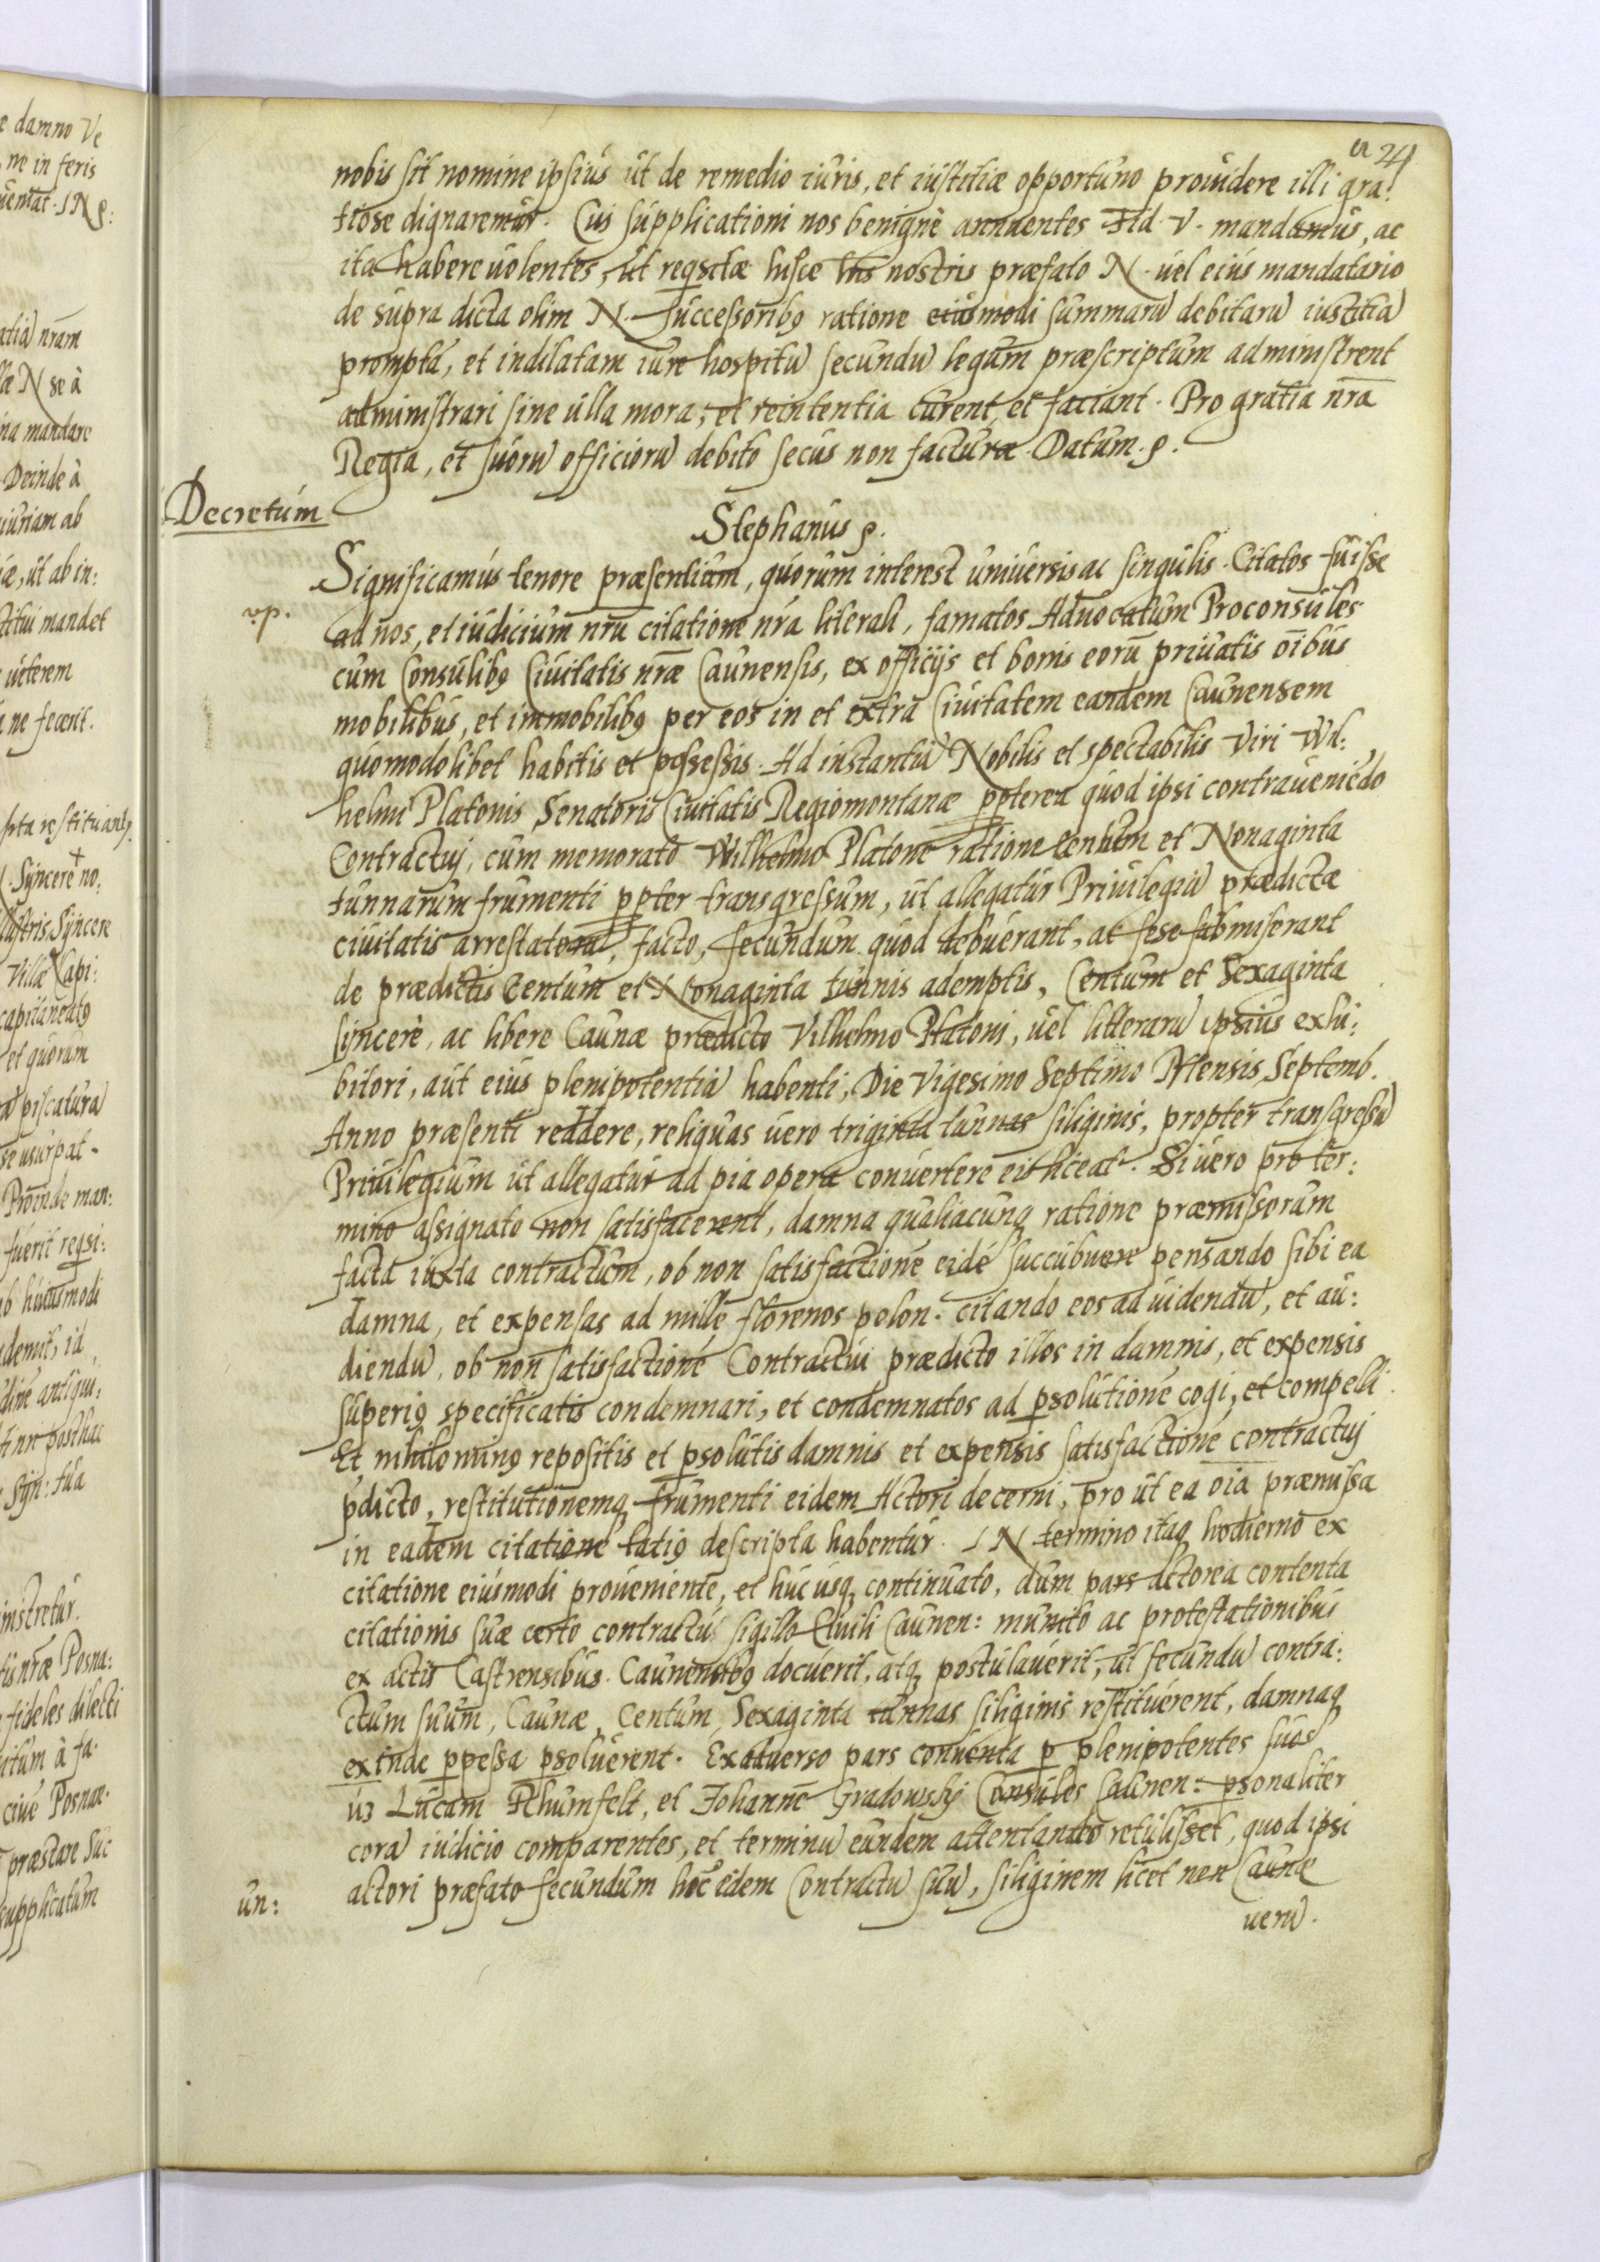 24
nobis sit nomine ipsius ut de remedio iuris, et iustitiæ opportuno prouidere illi gra:
tiose dignaremur. Cui supplicationi nos benigne annuentes Fid. V. mandamus, ac
ita habere uolentes, ut reqsitæ hisce lris nostris præfato N. uel eius mandatario
de supra dicta olim N. successoribꝫ ratione eiusmodi summarū debitarū iustitiā
promptā, et indilatam iure hospitū secundū legum præscriptum administrent
administrari sine ulla mora, et reintentia curent, et faciant. Pro gratia nr̄a
Regia, et suorū officiorū debito secus non facturæ. Datum. ꝭ.
Decretum
Stephanus ꝭ.
Significamus tenore præsentium, quorum interest uniuersis ac singulis. Citatos fuisse
ad nos, et iudicium nrū citatione nrā literali, famatos Aduocatum Proconsules
cum Consulibꝫ Ciuitatis nræ Caunensis, ex officijs et bonis eorū priuatis oībus
mobilibus, et immobilibꝫ per eos in et extra Ciuitatem eandem Caunensem
quomodolibet habitis et possessis. Ad instantiā Nobilis et spectabilis Viri Wil:
helmi Platonis Senatoris Ciuitatis Regiomontanæ ꝓpterea quod ipsi contraueniēdo
Contractuj, cum memorato Wilhelmo Platone ratione Centum et Nonaginta
tunnarum frumenti ꝓpter transgressum, ut allegatur Priuilegiū prædictæ
ciuitatis arrestatorū, facto, secundum quod debuerant, ac sese submiserant
de prædictis Centum et Nonaginta tunnis ademptis, Centum et Sexaginta
sincerè, ac libere Caunæ prædicto Vilhelmo Platoni, uel litterarū ipsius exhi:
bitori, aut eius plenipotentiā habenti, Die Vigesimo Septimo Mensis Septemb.
Anno præsenti reddere, reliquas uero triginta tunnas siliginis, propter transgressū
Priuilegium ut allegatur ad pia opera conuertere eis liceat. Si uero pro ter:
mino assignato non satisfacerent, damna qualiacunqꝫ ratione præmissorum
facta iuxta contractum, ob non satisfactionē eidē succubuere pensando sibi ea
damna, et expensas ad mille florenos polon. citando eos ad uidendū, et au:
diendū, ob non satisfactionē Contractui prædicto illos in damnis, et expensis
superiꝫ specificatis condemnari, et condemnatos ad ꝑsolutionē cogi, et compelli.
Et nihilominꝫ repositis et ꝑsolutis damnis et expensis satisfactionē contractuj
p̄dicto, restitutionemqꝫ frumenti eidem Actori decerni, pro ut ea oīa præmissa
in eadem citatione latiꝫ descripta habentur. IN termino itaqꝫ hodierno ex
citatione eiusmodi proueniente, et huc usqꝫ continuato, dum pars actorea contenta
citationis suæ certo contractus sigillo Ciuili Caunen: munito ac protestationibus
ex actis Castrensibus. Caunensibꝫ docuerit, atqꝫ postulauerit, ut secundū contra:
ctum suum, Caunæ, Centum Sexaginta tunnas siliginis restituerent, damnaqꝫ
exinde ꝑpessa ꝑsoluerent. Exaduerso pars conuenta ꝑ plenipotentes suos
uꝫ Lucam Rhumfelt, et Johannē Gradowskj Consules Caunen: ꝑsonaliter
corā iudicio comparentes, et terminū eundem attentando retulisset, quod ipsi
actori præfato secundum hoc idem Contractū suū, siliginem licet non Caunæ
uerū.